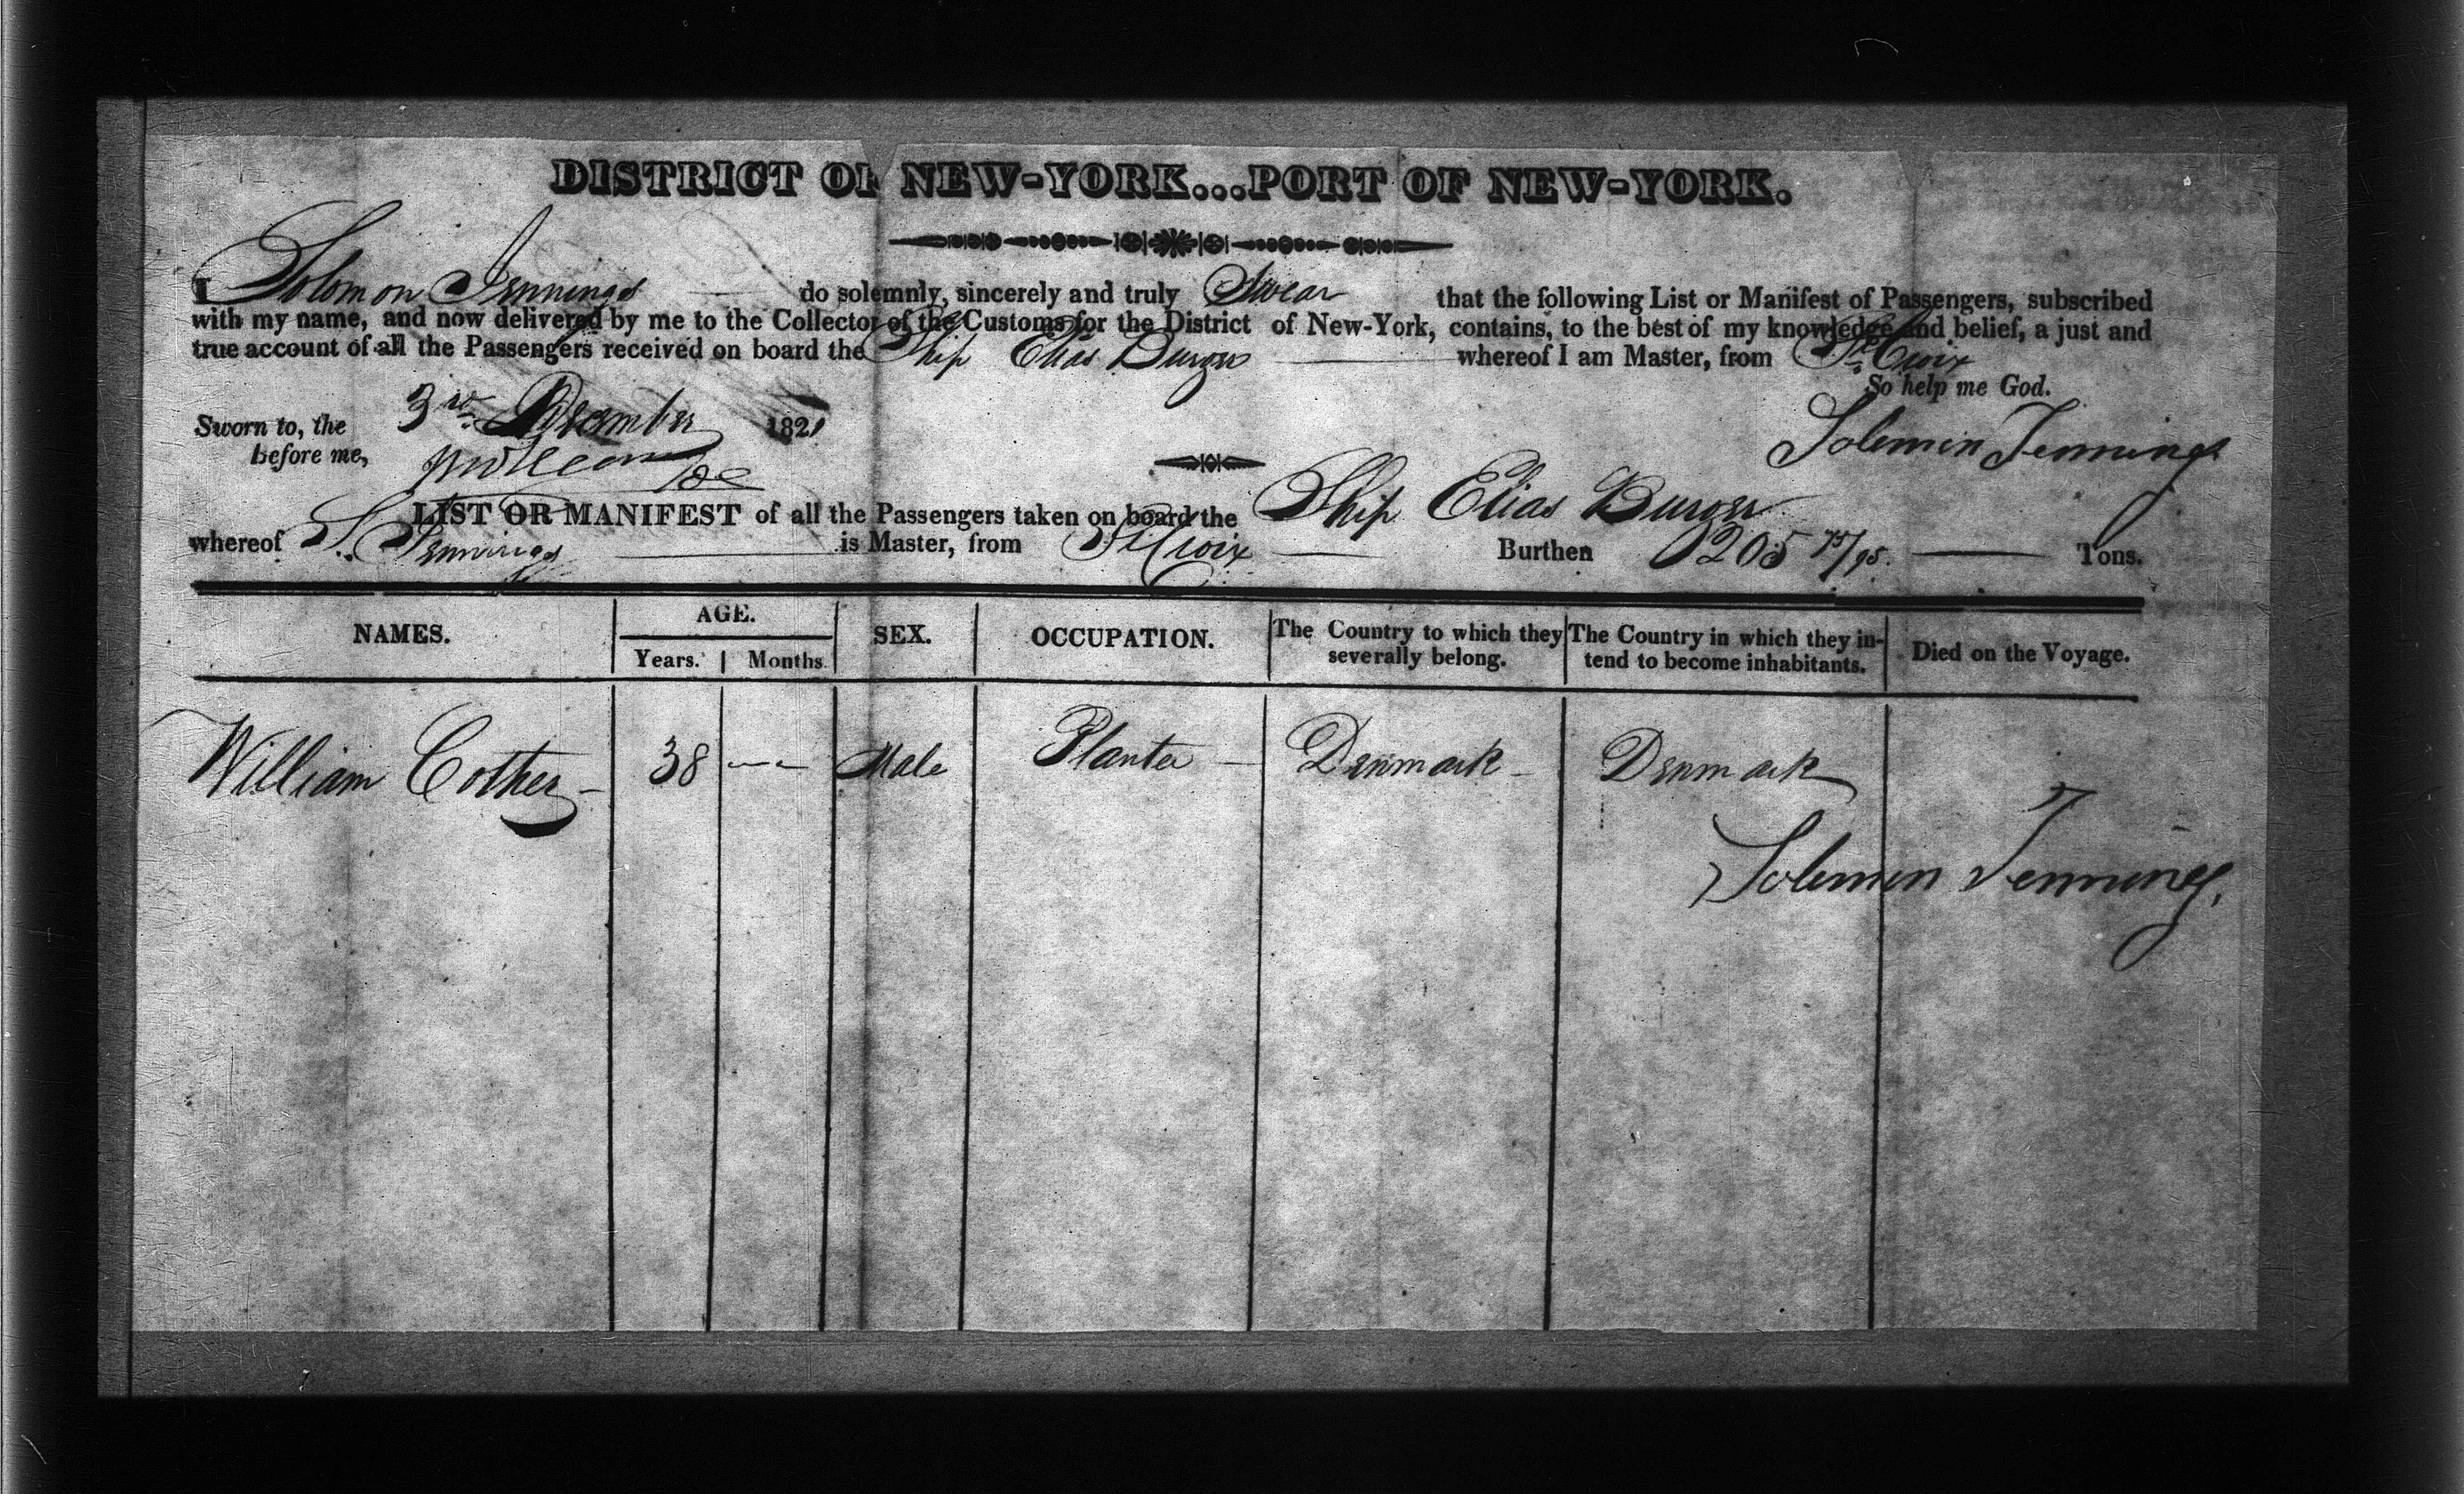 DISTRICT OF NEW-YORK...PORT OF NEW-YORK.
I Solomon Jennings do solemnly, sincerely and truly Swear that the following List or Manifest of Passengers, subscribed
with my name, and now delivered by me to the Collector of the Customs for the District of New-York, contains, to the best of my knowledge and belief, a just and
true account of all the Passengers received on board the Ship Elias Burger whereof I am Master, from St. Croix
So help me God.
Sworn to, the 3rd December 1821
before me,
Solomon Jennings
LIST OR MANIFEST of all the Passengers taken on board the Ship Elias Burger
whereof S. Jennings is Master, from St Croix Burthen 205 75/95 Tons.
NAMES. AGE. SEX. OCCUPATION. The Country to which they severally belong. The Country in which they intend to become inhabitants. Died on the Voyage.
Years. Months.
William Cother 38 Male Planter Denmark Denmark
Solomon Jennings